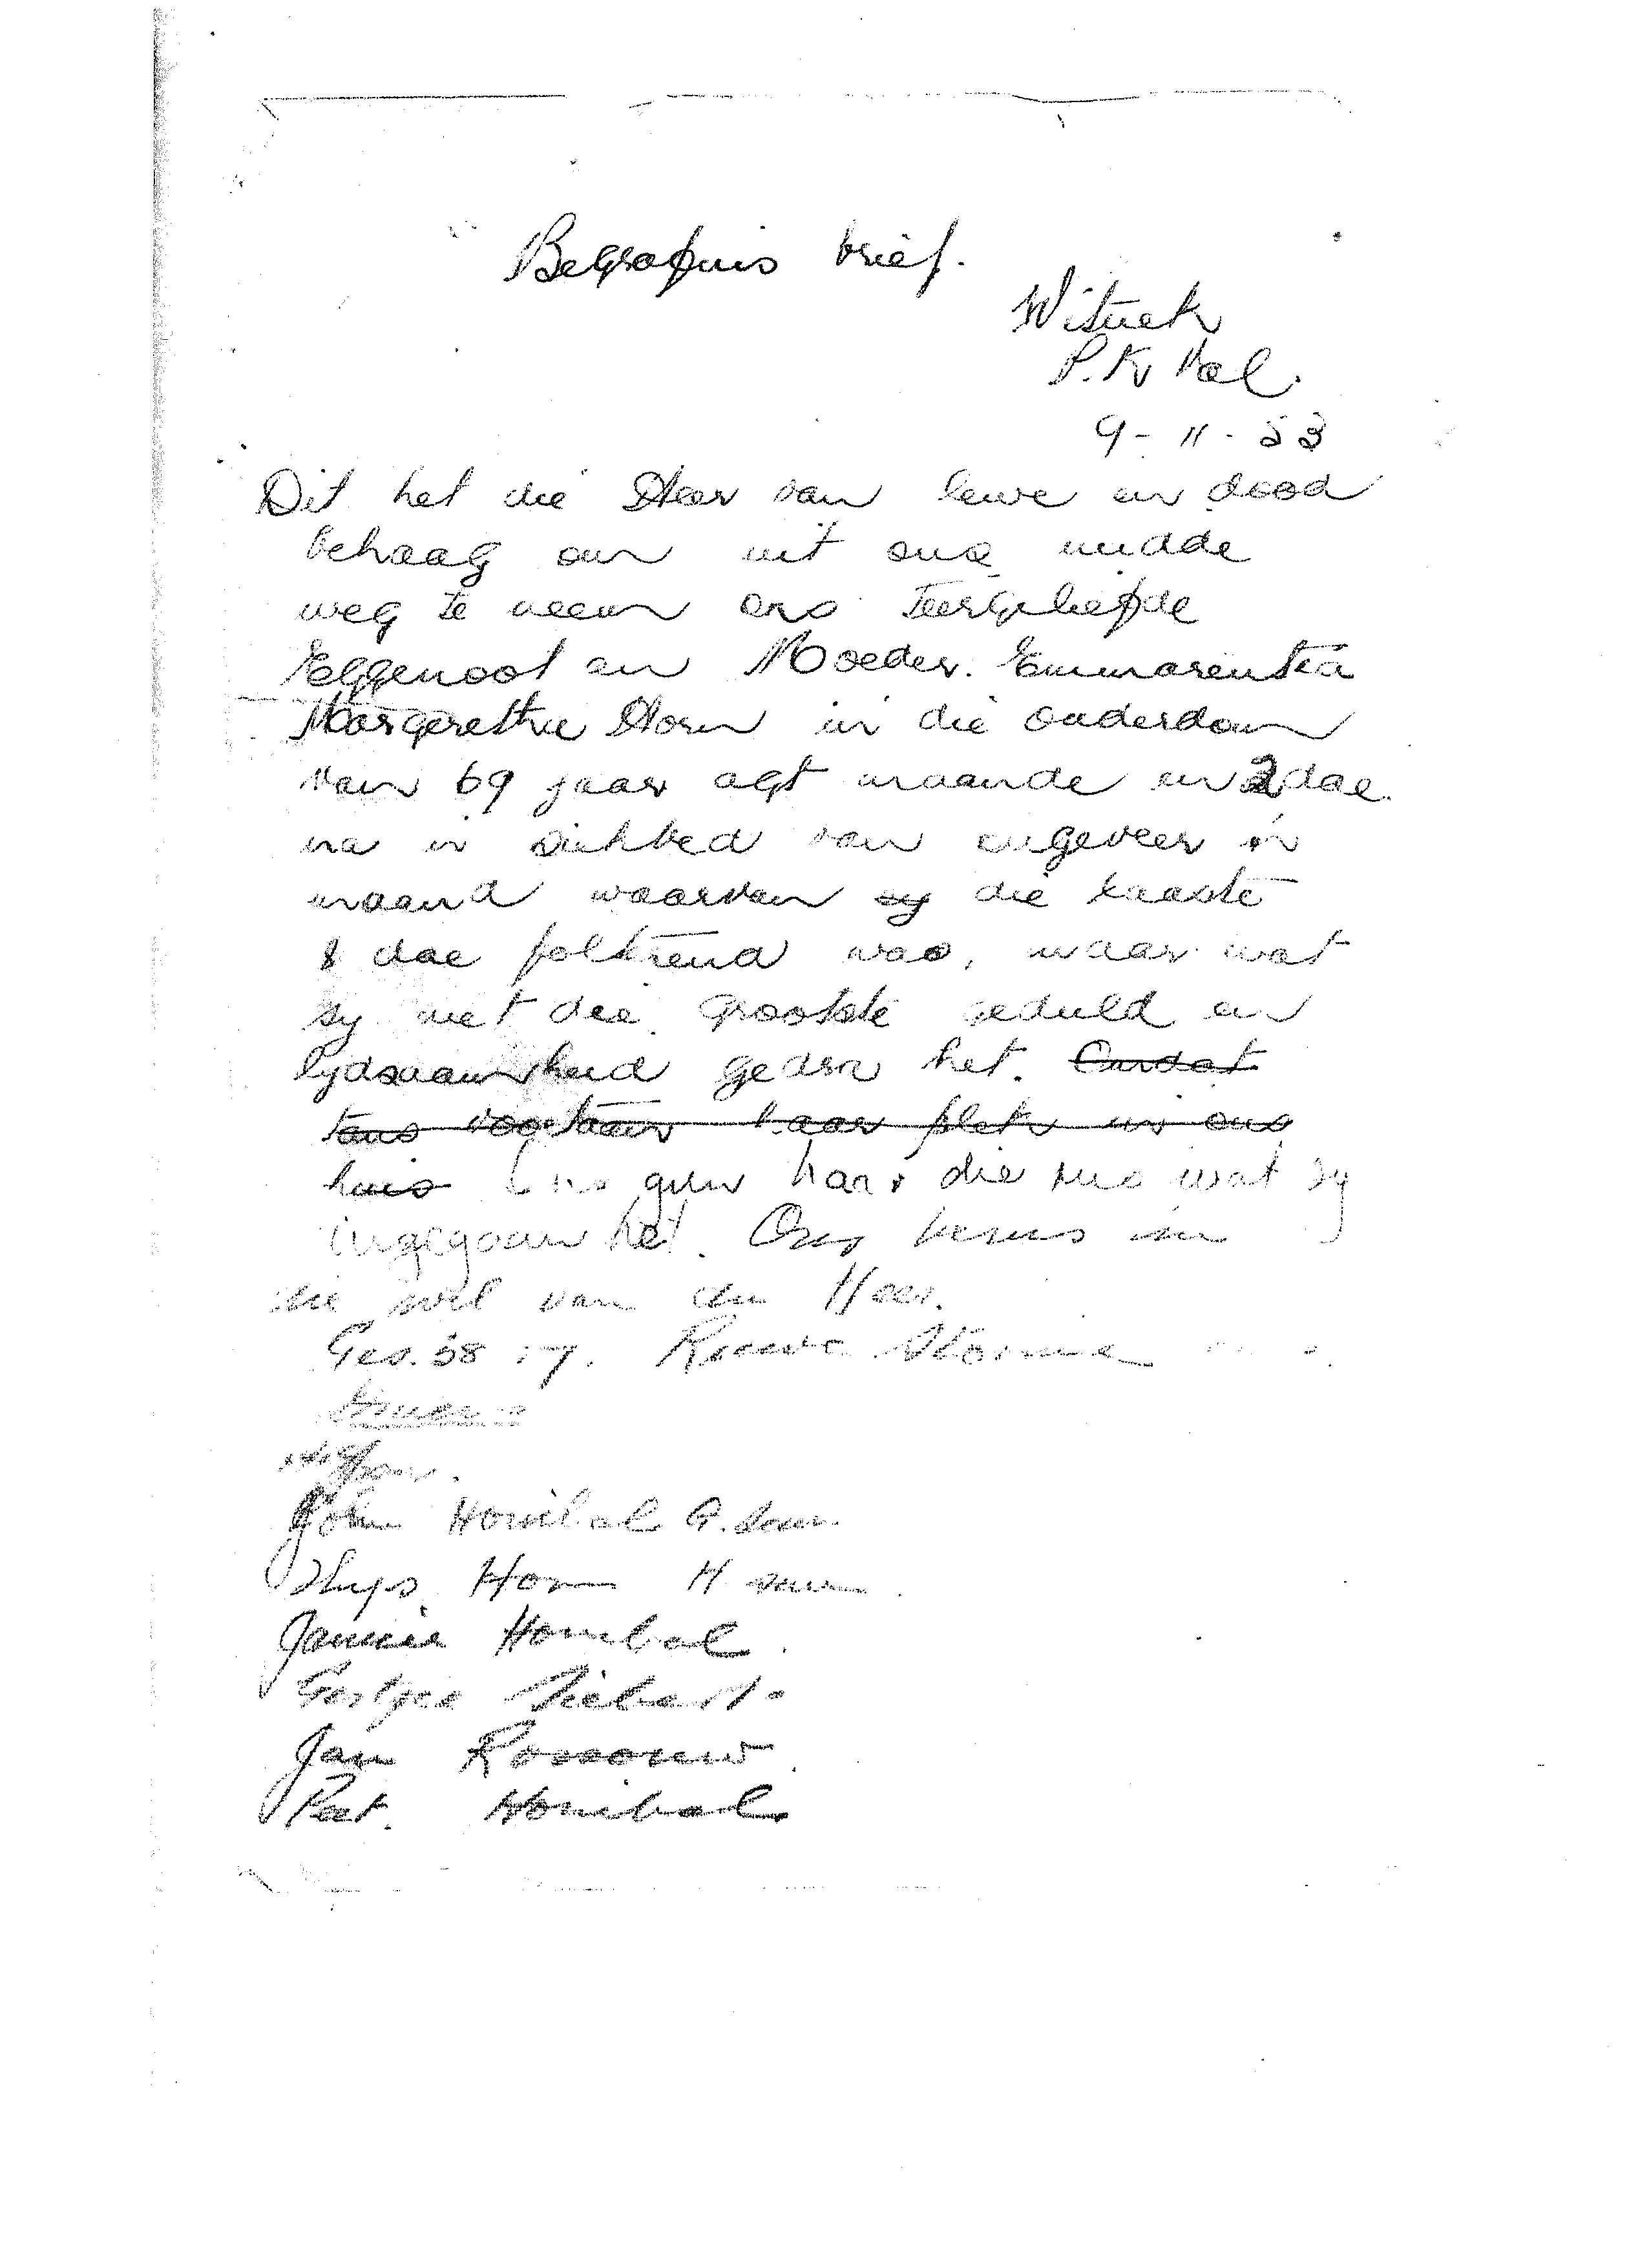 Begrafnis brief.
Witnek
P. K Val.
9 - 11 - 53
Dit het die Heer van lewe en dood
behaag om uit ons midde
weg te neem ons teergeliefde
Eggenoot en Moeder. Emmarentia
Margerethe Horn in die ouderdom
van 69 jaar agt maande en 2 dae
na 'n siekbed van ongeveer 'n
maand waarvan sy die laaste
8 dae folterend was, maar wat
sy met die grootste geduld en
lydsaamheid gedra het. Omdat
tans voortaan haar plek in ons
huis Ons gun haar die rus wat sy
ingegaan het. Ons berus in
die wil van die Heer.
Ges. 58 : 7.
John Honibal
Thys Horn H
Jannie Honibal
Liebert
Jan Rossouw
Piet. Honibal.